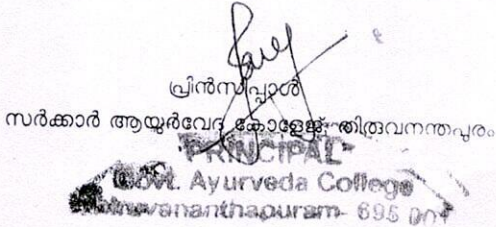 പ്രിൻസിപ്പാൾ
സർക്കാർ ആയുർവേദ കോളേജ്, തിരുവനന്തപുരം
PRINCIPAL
Govt. Ayurveda College
Thiruvananthapuram- 695 001